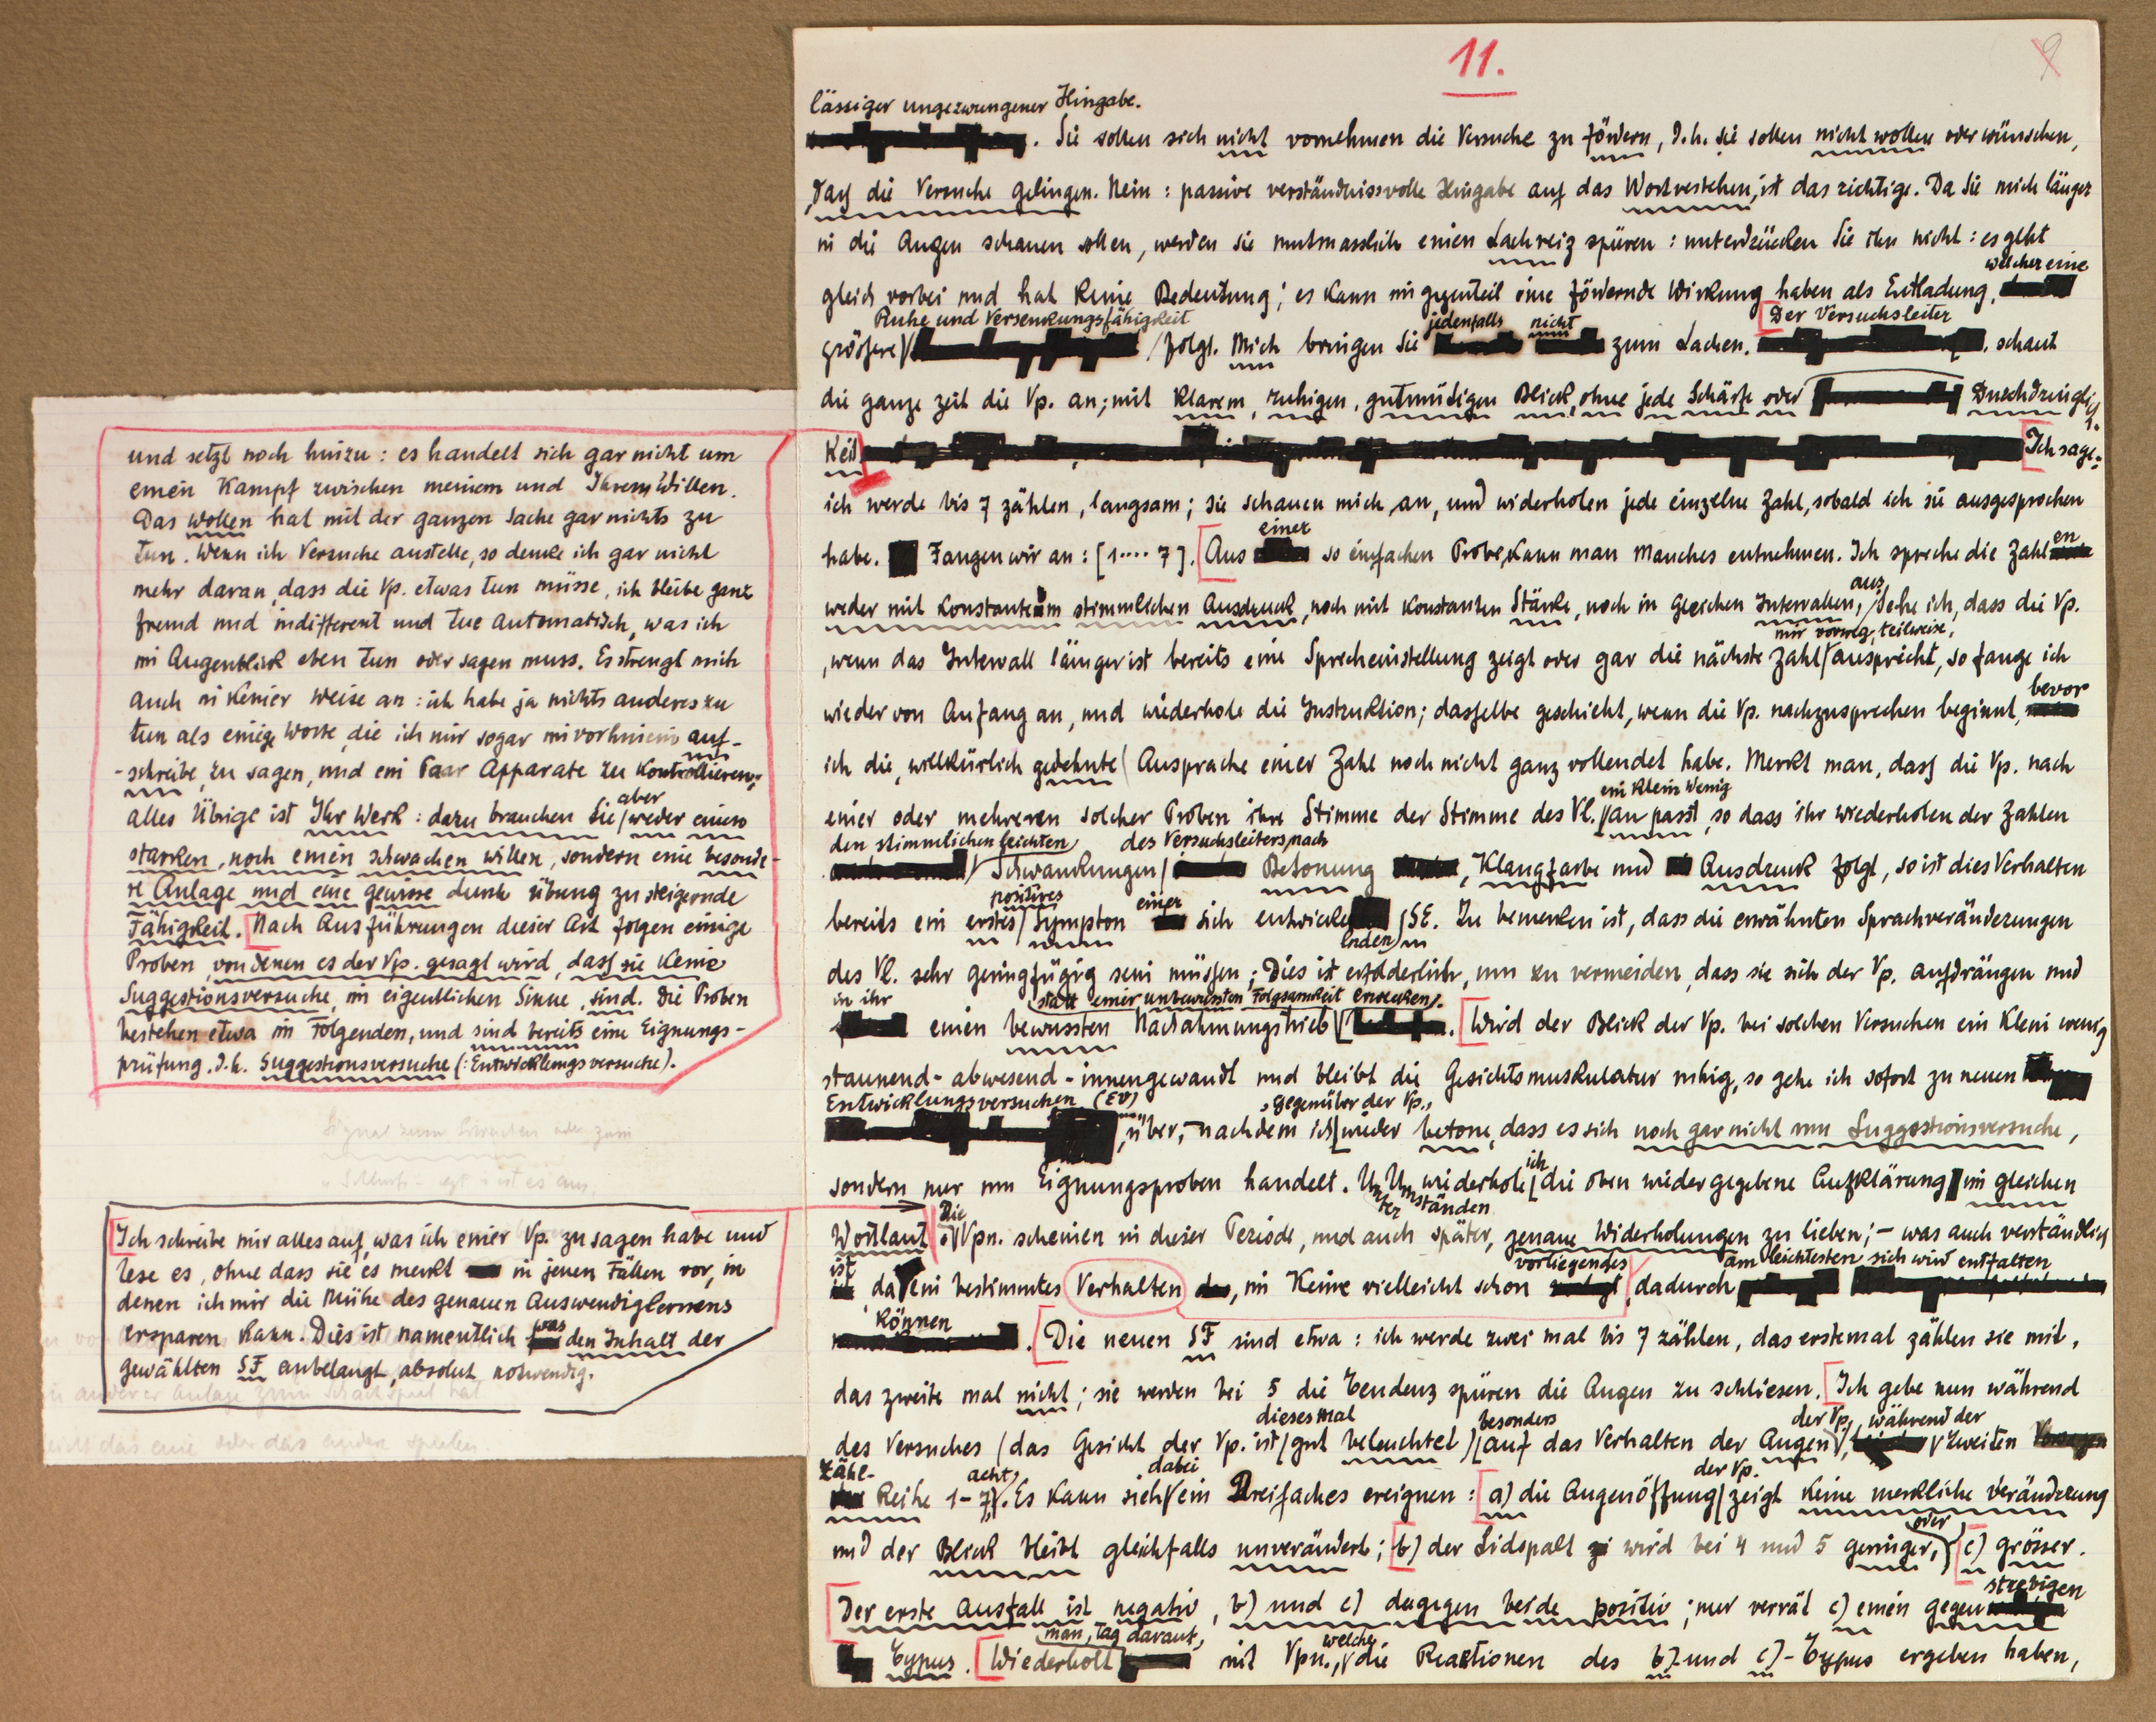 11.
9
lässiger ungezwungener Hingabe.
. Sie sollen sich nicht vornehmen die Versuche zu fördern, d.h. sie sollen nicht wollen oder wünschen,
dass die Versuche gelingen. Nein: passive verständnissvolle Hingabe auf das Wortverstehen, ist das richtige. Da Sie mich länger
in die Augen schauen sollen, werden sie mutmasslich einen Lachreiz spüren: unterdrücken Sie ihn nicht: es geht
gleich vorbei und hat keine Bedeutung; es kann im gegenteil eine fördernde Wirkung haben als Entladung, welcher eine
grössere Ruhe und Versenkungsfähigkeit folgt. Mich bringen Sie jedenfalls nicht zum Lachen. Der Versuchsleiter schaut
die ganze zeit die Vp. an; mit klarem, ruhigen, gutmütigen Blick, ohne jede Schärfe oder Durchdringlich
keit Ich sage:
ich werde bis 7 zählen, langsam; sie schauen mich an, und widerholen jede einzelne Zahl, sobald ich sie ausgesprochen
habe. Fangen wir an: [1.... 7]. Aus einer so einfachen Probe, kann man manches entnehmen. Ich spreche die Zahlen
weder mit konstantem stimmlichen Ausdruck, noch mit konstanten Stärke, noch in gleichen Intervallen, aus, Sehe ich, dass die Vp.
, wenn das Intervall länger ist bereits eine Sprecheinstellung zeigt oder gar die nächste Zahl mir vorweg, teilweise, ausspricht, so fange ich
wieder von Anfang an, und wiederhole die Instruktion; dasselbe geschieht, wenn die Vp. nachzusprechen beginnt, bevor
ich die, willkürlich gedehnte Aussprache einer Zahl noch nicht ganz vollendet habe. Merkt man, dass die Vp. nach
einer oder mehreren solcher Proben ihre Stimme der Stimme des Vl. ein klein wenig an passt, so dass ihr wiederholen der Zahlen
den stimmlichen leichten Schwankungen des Versuchsleiters, nach Betonung, Klangfarbe und Ausdruck folgt, so ist dies Verhalten
bereits ein erstes positives Sympton einer sich entwickelnden SE. Zu bemerken ist, dass die erwähnten Sprachveränderungen
des Vl. sehr geringfügig sein müssen; Dies ist erforderlich, um zu vermeiden, dass sie sich der Vp. aufdrängen und
in ihr einen bewussten Nachahmungstrieb statt einer unbewussten Folgsamkeit erwecken. Wird der Blick der Vp. bei solchen Versuchen ein klein wenig
staunend - abwesend - innengewandt und bleibt die Gesichtsmuskulatur ruhig, so gehe ich sofort zu neuen
Entwicklungsversuchen (EV) über, - nachdem ich, gegenüber der Vp., wieder betone, dass es sich noch gar nicht um Suggestionsversuche,
sondern nur um Eignungsproben handelt. Unter Umständen wiederhole ich die oben wiedergegebene Aufklärung im gleichen
Wortlaut. Die Vpn. scheinen in dieser Periode, und auch später, genaue Widerholungen zu lieben; - was auch verständlich
ist, da ein bestimmtes Verhalten, im Keime vielleicht schon vorliegendes, dadurch am leichtesten sich wird entfalten
können. Die neuen SF sind etwa: ich werde zwei mal bis 7 zählen, das erstemal zählen sie mit,
das zweite mal nicht; sie werden bei 5 die Tendenz spüren die Augen zu schliesen. Ich gebe nun während
des Versuches (das Gesicht der Vp. ist dieses mal gut beleuchtet) besonders auf das Verhalten der Augen der Vp, während der zweiten
Zähl- Reihe 1-7, acht. Es kann sich dabei ein Dreifaches ereignen: a) die Augenöffung der Vp. zeigt keine merkliche Veränderung
und der Blick bleibt gleichfalls unverändert; b) der Lidspalt wird bei 4 und 5 geringer, oder c) grösser.
Der erste Ausfall ist negativ, b) und c) dagegen beide positiv; nur verrät c) einen gegenstrebigen
Typus. Wiederholt man, tag darauf, mit Vpn., welche die Reaktionen des b)- und c)- Typus ergeben haben,
und setzt noch hinzu: es handelt sich gar nicht um
einen Kampf zwischen meinem und Ihrem Willen.
Das wollen hat mit der ganzen Sache gar nichts zu
tun. Wenn ich Versuche anstelle, so denke ich gar nicht
mehr daran, dass die Vp. etwas tun müsse, ich bleibe ganz
fremd und indifferent und tue automatisch, was ich
im Augenblick eben tun oder sagen muss. Es strengt mich
auch in keiner Weise an: ich habe ja nichts anderes zu
tun als einige Worte, die ich mir sogar im vorhinein auf-
- schreibe, zu sagen, und ein Paar Apparate zu kontrollieren;
alles Übrige ist Ihr Werk: dazu brauchen Sie aber weder einen
starken, noch einen schwachen willen, sondern eine besonde-
re Anlage und eine gewisse durch übung zu steigernde
Fähigkeit. Nach Ausführungen dieser Art folgen einige
Proben, von denen es der Vp. gesagt wird, dass sie keine
Suggestionsversuche, im eigentlichen Sinne, sind. Die Proben
bestehen etwa im Folgenden, und sind bereits eine Eignungs-
prüfung. d.h. Suggestionsversuche (: Entwicklungsversuche).
Ich schreibe mir alles auf, was ich einer Vp. zu sagen habe und
lese es, ohne dass sie es merkt in jenen Fällen vor, in
denen ich mir die Mühe des genauen Auswendiglernens
ersparen kann. Dies ist namentlich was den Inhalt der
gewählten SF anbelangt, absolut notwendig.